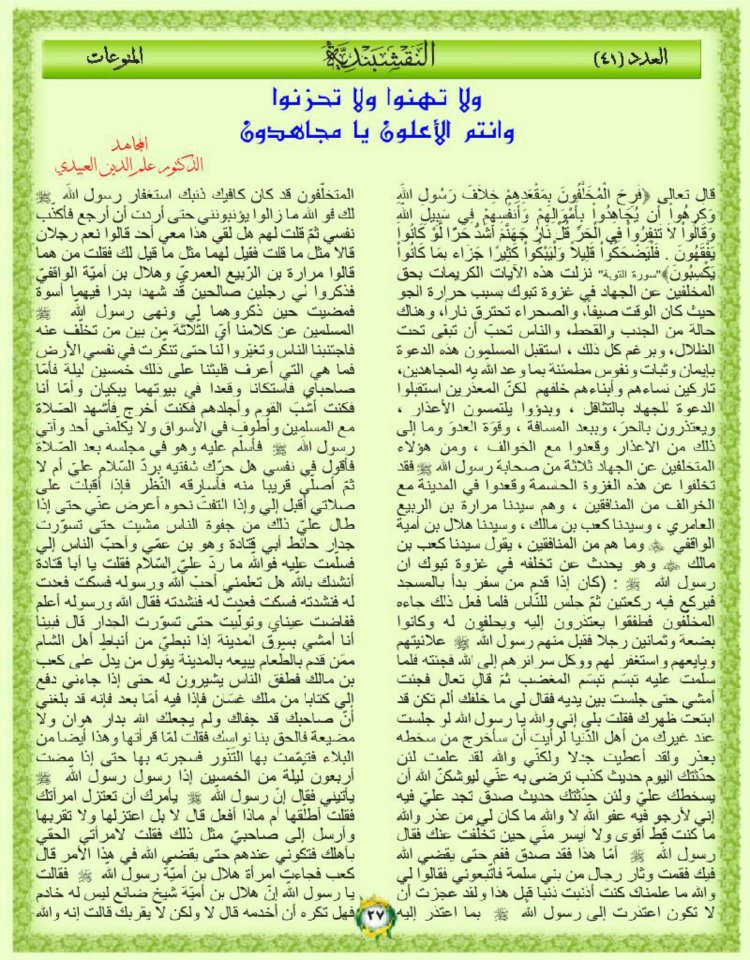 العدد (٤١)
النقشبندية
المنوعات
ولا تهنوا ولا تحزنوا
وانتم الأعلون يا مجاهدون
المجاهد
الدكتور علم الدين العبيدي
قال تعالى ﴿فَرِحَ الْمُخَلَّفُونَ بِمَقْعَدِهِمْ خِلَافَ رَسُولِ اللَّهِ
وَكَرِهُواْ أَن يُجَاهِدُواْ بِأَمْوَالِهِمْ وَأَنفُسِهِمْ فِي سَبِيلِ اللَّهِ
وَقَالُواْ لَا تَنفِرُواْ فِي الْحَرِّ قُلْ نَارُ جَهَنَّمَ أَشَدُّ حَرًّا لَّوْ كَانُوا
يَفْقَهُونَ . فَلْيَضْحَكُواْ قَلِيلاً وَلْيَبْكُواْ كَثِيرًا جَزَاء بِمَا كَانُواْ
يَكْسِبُونَ﴾"سورة التوبة" نزلت هذه الآيات الكريمات بحق
المخلفين عن الجهاد في غزوة تبوك بسبب حرارة الجو
حيث كان الوقت صيفاً، والصحراء تحترق ناراً، وهناك
حالة من الجدب والقحط، والناس تحبّ أن تبقى تحت
الظلال، وبرغم كلّ ذلك ، استقبل المسلمون هذه الدعوة
بإيمان وثبات ونفوس مطمئنة بما وعد الله به المجاهدين،
تاركين نساءهم وأبناءهم خلفهم لكنّ المعذّرين استقبلوا
الدعوة للجهاد بالتثاقل ، وبدؤوا يلتمسون الأعذار ،
ويعتذرون بالحرّ، وببعد المسافة ، وقوّة العدوّ وما إلى
ذلك من الاعذار وقعدوا مع الخوالف ، ومن هؤلاء
المتخلفين عن الجهاد ثلاثة من صحابة رسول الله ﷺ فقد
تخلفوا عن هذه الغزوة الحسمة وقعدوا في المدينة مع
الخوالف من المنافقين ، وهم سيدنا مرارة بن الربيع
العامري ، وسيدنا كعب بن مالك ، وسيدنا هلال بن أمية
الواقفي وما هم من المنافقين ، يقول سيدنا كعب بن
مالك وهو يحدث عن تخلفه في غزوة تبوك ان
رسول الله ﷺ : (كان إذا قدم من سفر بدأ بالمسجد
فيركع فيه ركعتين ثمّ جلس للنّاس فلما فعل ذلك جاءه
المخلفون فطفقوا يعتذرون إليه ويحلفون له وكانوا
بضعة وثمانين رجلا فقبل منهم رسول الله ﷺ علانيتهم
وبايعهم واستغفر لهم ووكل سرائرهم إلى الله فجئته فلما
سلمت عليه تبسّم تبسّم المغضب ثمّ قال تعال فجئت
أمشي حتى جلست بين يديه فقال لي ما خلفك ألم تكن قد
ابتعت ظهرك فقلت بلى إني والله يا رسول الله لو جلست
عند غيرك من أهل الدّنيا لرأيت أن سأخرج من سخطه
بعذر ولقد أعطيت جدلا ولكنّي والله لقد علمت لئن
حدّثتك اليوم حديث كذب ترضى به عنّي ليوشكنّ الله أن
يسخطك عليّ ولئن حدّثتك حديث صدق تجد عليّ فيه
إني لأرجو فيه عفو الله لا والله ما كان لي من عذر والله
ما كنت قط أقوى ولا أيسر منّي حين تخلّفت عنك فقال
رسول الله ﷺ أمّا هذا فقد صدق فقم حتى يقضي الله
فيك فقمت وثار رجال من بني سلمة فأتبعوني فقالوا لي
والله ما علمناك كنت أذنبت ذنبا قبل هذا ولقد عجزت أن
لا تكون اعتذرت إلى رسول الله ﷺ بما اعتذر إليه
المتخلّفون قد كان كافيك ذنبك استغفار رسول الله ﷺ
لك فو الله ما زالوا يؤنبونني حتى أردت أن أرجع فأكذّب
نفسي ثمّ قلت لهم هل لقي هذا معي أحد قالوا نعم رجلان
قالا مثل ما قلت فقيل لهما مثل ما قيل لك فقلت من هما
قالوا مرارة بن الرّبيع العمريّ وهلال بن أميّة الواقفيّ
فذكروا لي رجلين صالحين قد شهدا بدرا فيهما أسوة
فمضيت حين ذكروهما لي ونهى رسول الله ﷺ
المسلمين عن كلامنا أي الثّلاثة من بين من تخلّف عنه
فاجتنبنا الناس وتغيّروا لنا حتى تنكّرت في نفسي الأرض
فما هي التي أعرف فلبثنا على ذلك خمسين ليلة فأمّا
صاحباي فاستكانا وقعدا في بيوتهما يبكيان وأمّا أنا
فكنت أشبّ القوم وأجلدهم فكنت أخرج فأشهد الصّلاة
مع المسلمين وأطوف في الأسواق ولا يكلمني أحد وآتي
رسول الله ﷺ فأسلّم عليه وهو في مجلسه بعد الصّلاة
فأقول في نفسي هل حرّك شفتيه بردّ السّلام عليّ أم لا
ثمّ أصلّي قريبا منه فأسارقه النّظر فإذا أقبلت على
صلاتي أقبل إلي وإذا التفتّ نحوه أعرض عنّي حتى إذا
طال عليّ ذلك من جفوة الناس مشيت حتى تسوّرت
جدار حائط أبي قتادة وهو بن عمّي وأحبّ الناس إلي
فسلمت عليه فوالله ما ردّ عليّ السّلام فقلت يا أبا قتادة
أنشدك بالله هل تعلمني أحبّ الله ورسوله فسكت فعدت
له فنشدته فسكت فعدت له فنشدته فقال الله ورسوله أعلم
ففاضت عيناي وتولّيت حتى تسوّرت الجدار قال فبينا
أنا أمشي بسوق المدينة إذا نبطيّ من أنباط أهل الشام
ممّن قدم بالطّعام يبيعه بالمدينة يقول من يدل على كعب
بن مالك فطفق الناس يشيرون له حتى إذا جاءني دفع
إلي كتابا من ملك غسّان فإذا فيه أمّا بعد فإنه قد بلغني
أنّ صاحبك قد جفاك ولم يجعلك الله بدار هوان ولا
مضيعة فالحق بنا نواسك فقلت لمّا قرأتها وهذا أيضا من
البلاء فتيمّمت بها التّنّور فسجرته بها حتى إذا مضت
أربعون ليلة من الخمسين إذا رسول رسول الله ﷺ
يأتيني فقال إنّ رسول الله ﷺ يأمرك أن تعتزل امرأتك
فقلت أطلّقها أم ماذا أفعل قال لا بل اعتزلها ولا تقربها
وأرسل إلى صاحبيّ مثل ذلك فقلت لامرأتي الحقي
بأهلك فتكوني عندهم حتى يقضي الله في هذا الأمر قال
كعب فجاءت امرأة هلال بن أميّة رسول الله ﷺ فقالت
يا رسول الله إنّ هلال بن أميّة شيخ ضائع ليس له خادم
فهل تكره أن أخدمه قال لا ولكن لا يقربك قالت إنه والله
٢٧